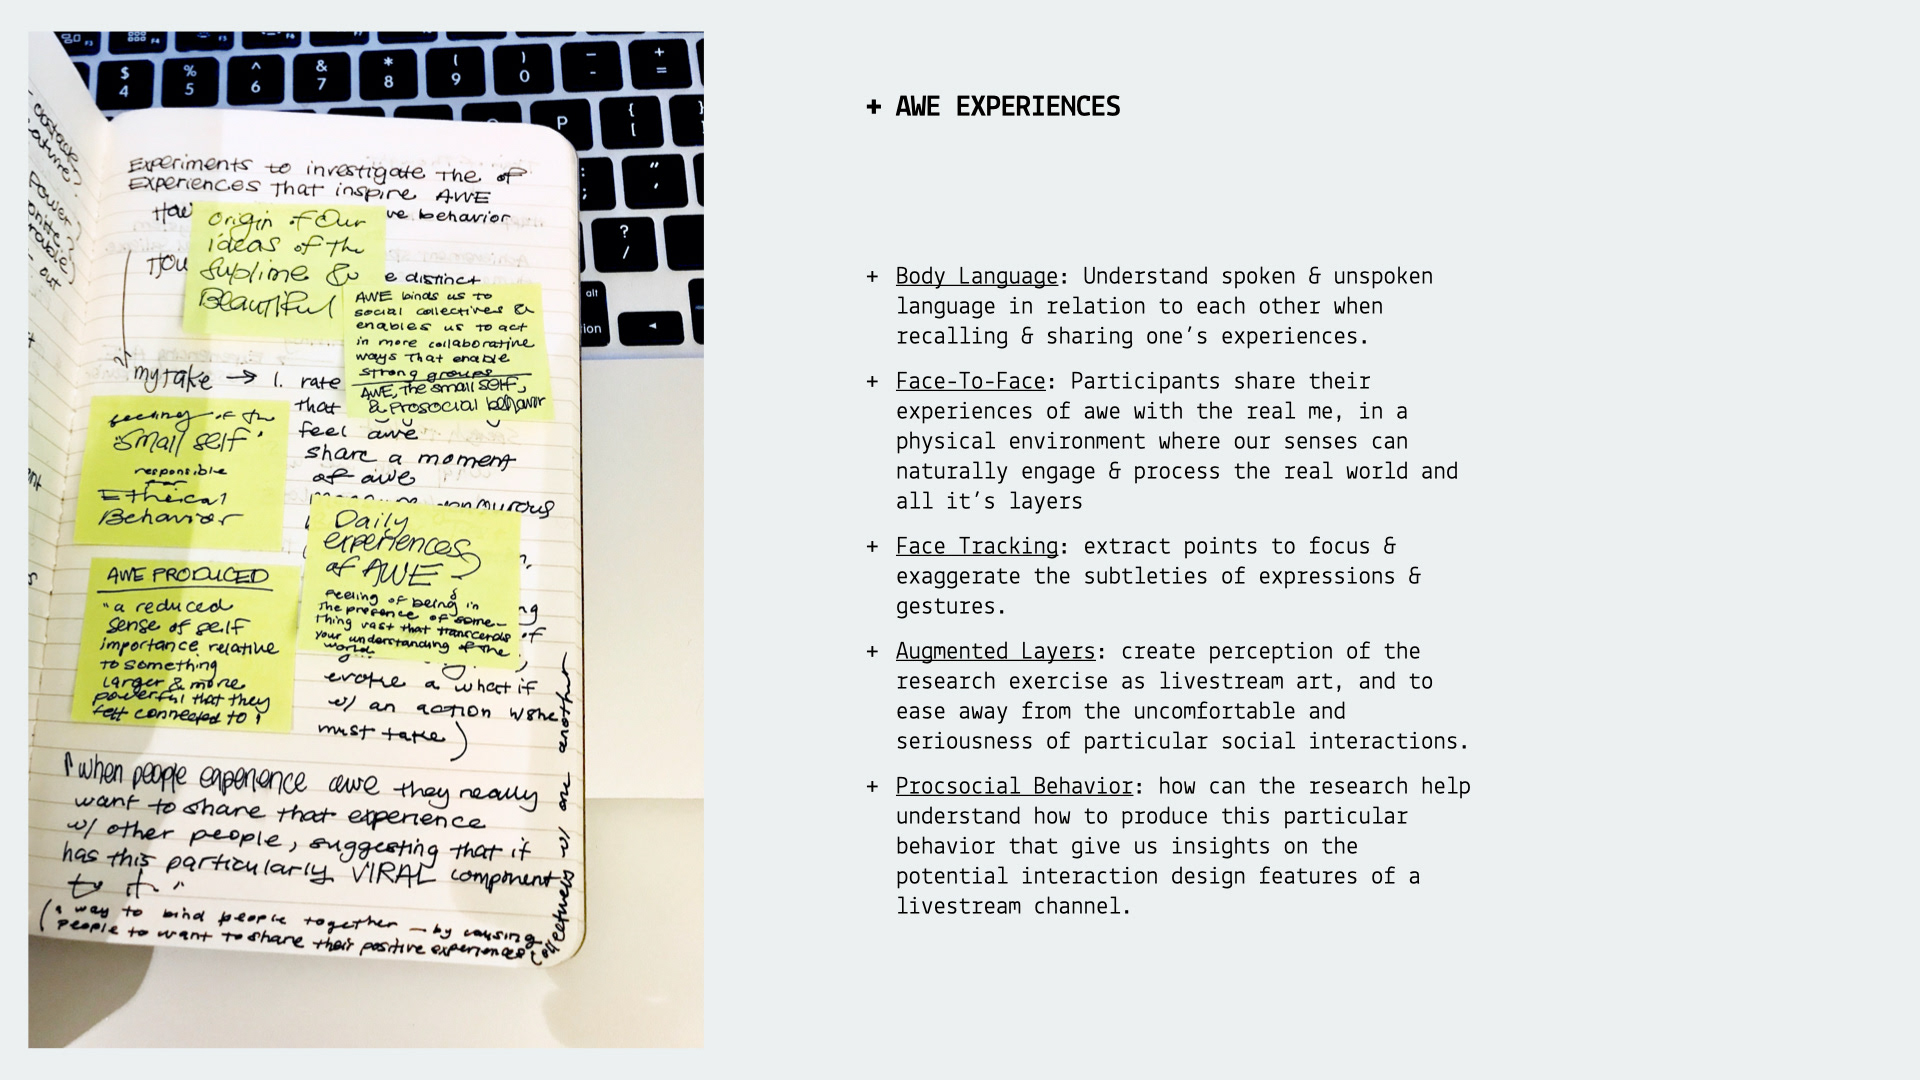 Experiments to investigate the of
Experiences that inspire AWE
How
ve behavior
How
e distinct
origin of our
ideas of the
Suplime &
Beautiful
AWE binds us to
social collectives &
enables us to act
in more collaborative
ways that enable
strong groups
AWE, the small self,
& prosocial behavior
my take → 1. rate
that
feel awe
share a moment
of awe
feeling of the
"small self"
responsible
for
Ethical
Behavior
Daily
experiences
of AWE
feeling of being in
the presence of some-
thing vast that transcends
your understanding of the
world.
ng
of
AWE PRODUCED
"a reduced
sense of self
importance relative
to something
larger & more
powerful that they
felt connected to!
evoke a what if
w/ an action
must take)
"when people experience awe they really
want to share that experience
w/ other people, suggesting that it
has this particularly VIRAL component
to it."
(a way to bind people together — by causing
people to want to share their positive experiences
collectively w/ one another
$ 4 % 5 ^ 6 & 7 * 8 ( 9 ) 0 - + =
P { [
" '
? /
alt
ion
+ AWE EXPERIENCES
+ Body Language: Understand spoken & unspoken
language in relation to each other when
recalling & sharing one's experiences.
+ Face-To-Face: Participants share their
experiences of awe with the real me, in a
physical environment where our senses can
naturally engage & process the real world and
all it's layers
+ Face Tracking: extract points to focus &
exaggerate the subtleties of expressions &
gestures.
+ Augmented Layers: create perception of the
research exercise as livestream art, and to
ease away from the uncomfortable and
seriousness of particular social interactions.
+ Procsocial Behavior: how can the research help
understand how to produce this particular
behavior that give us insights on the
potential interaction design features of a
livestream channel.